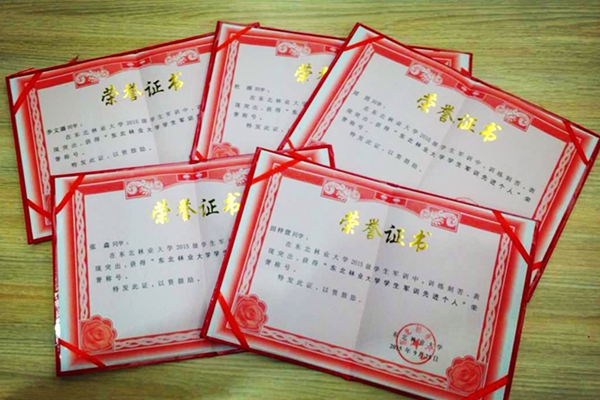 荣誉证书
李文
同学：
在东北林业大学2015级学生军训中，
现突出，获得“东北林业大学学生
誉称号。
特发此证，以资鼓励。
荣誉证书
同学：
在东北林业大
现突出，获得“东北
誉称号。
特发此证
荣誉证书
同学：
在东北林业大学2015级学生军训中，训练刻苦、表
现突出，获得“东北林业大学学生军训先进个人”荣
誉称号。
特发此证，以资鼓励。
荣誉证书
张鑫同学：
在东北林业大学2015级学生军
现突出，获得“东北林业大学学
誉称号。
特发此证，以资鼓励。
荣誉证书
同学：
在东北林业大学2015级学生军训中，训练刻苦、表
现突出，获得“东北林业大学学生军训先进个人”荣
誉称号。
特发此证，以资鼓励。
东北林业大学
2015年9月